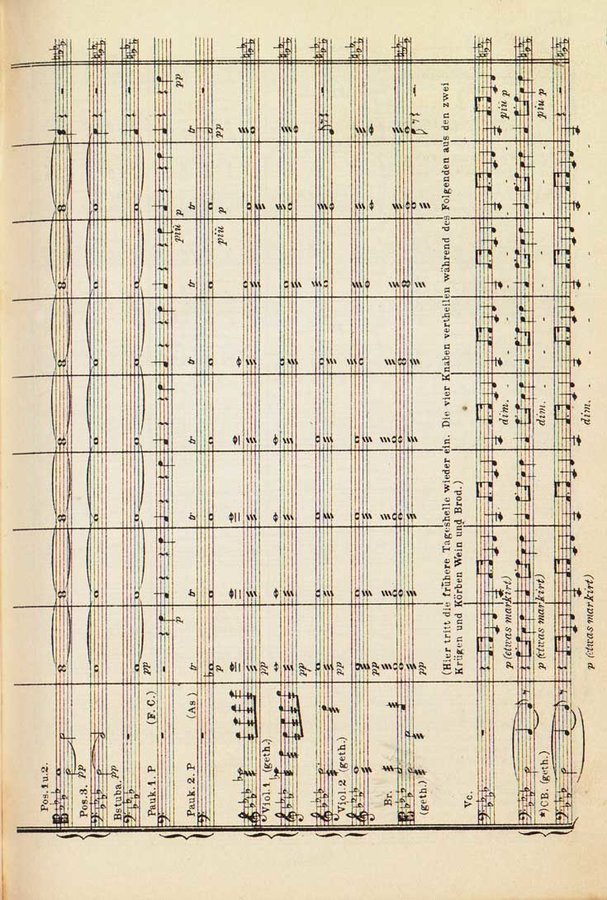 Pos. 1 u. 2.
pp
Pos. 3.
pp
Bstuba.
pp
Pauk. 1. P (F. C.)
p più p pp
Pauk. 2. P (As)
tr tr tr tr tr tr tr tr
p più p pp
Viol. 1 (geth.)
pp
pp
Viol. 2 (geth.)
pp
pp
Br.
(geth.)
pp
(Hier tritt die frühere Tageshelle wieder ein. Die vier Knaben vertheilen während des Folgenden aus den zwei
Krügen und Körben Wein und Brod.)
Vc.
p (etwas markirt) dim. - - - - più p
*) CB. (geth.)
p (etwas markirt) dim. - - - - più p
p (etwas markirt) dim. - - - -